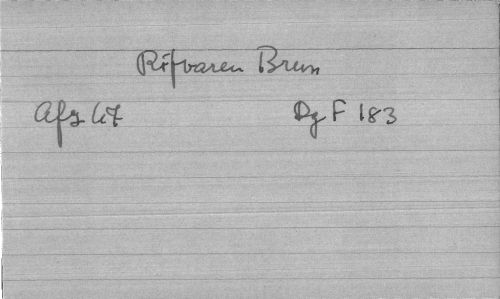 Rifvaren Brun
Afz 67
Dg F 183